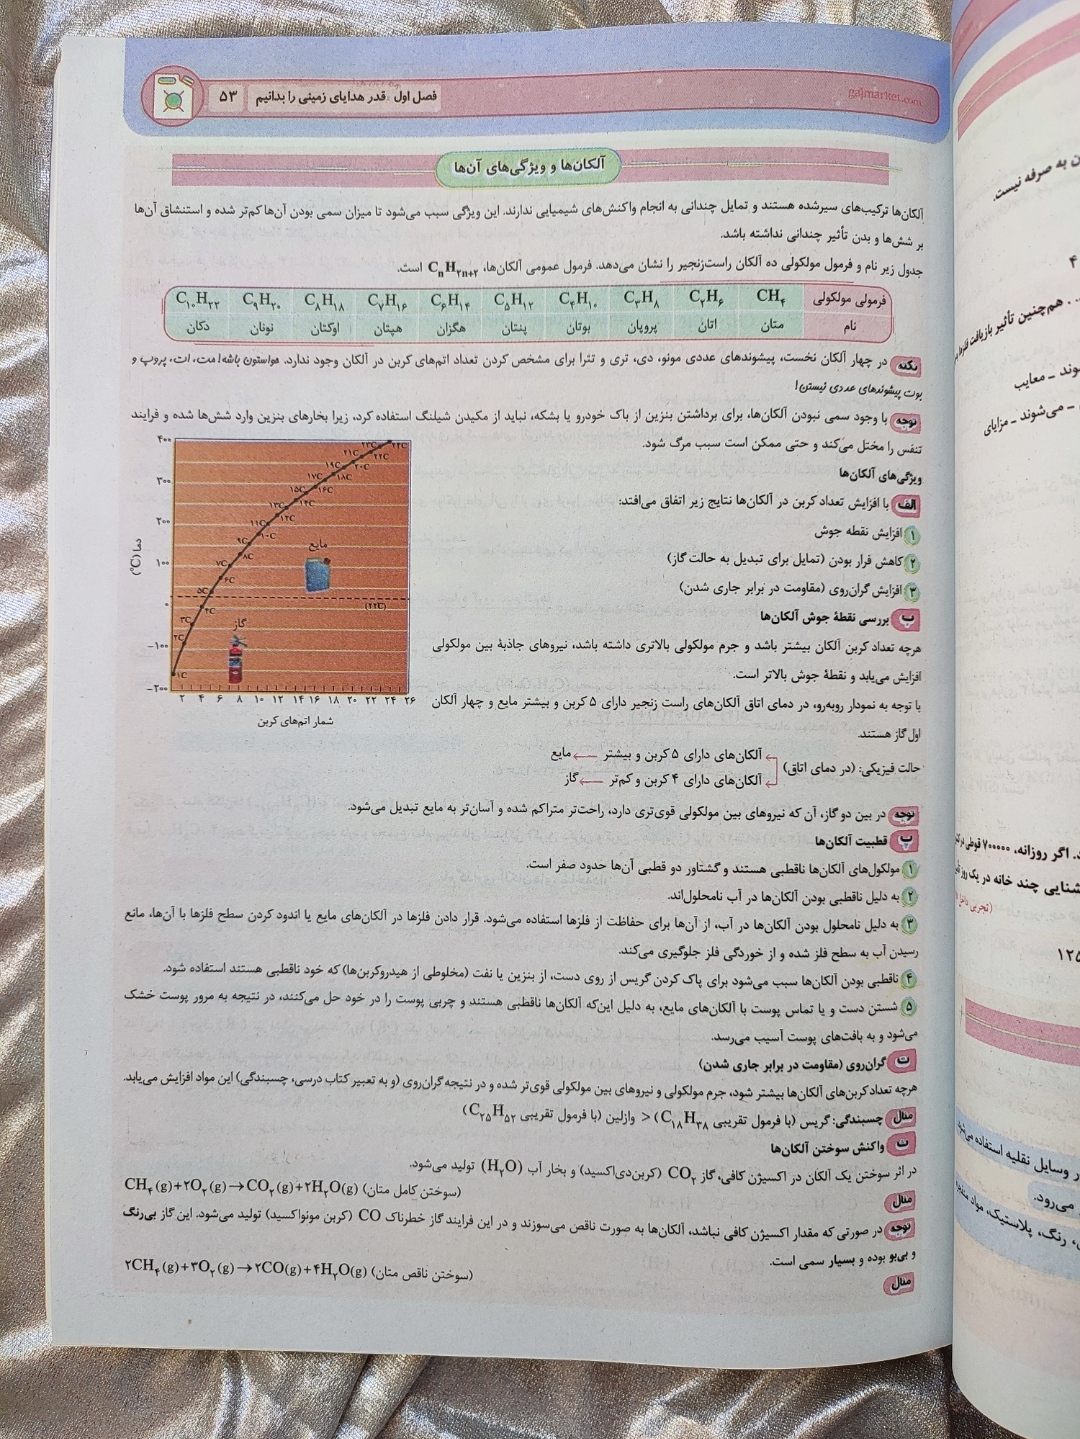 فصل اول قدر هدایای زمینی را بدانیم ۵۳
gajmarket.com
آلکان‌ها و ویژگی‌های آن‌ها
آلکان‌ها ترکیب‌های سیرشده هستند و تمایل چندانی به انجام واکنش‌های شیمیایی ندارند. این ویژگی سبب می‌شود تا میزان سمی بودن آن‌ها کم‌تر شده و استنشاق آن‌ها
بر شش‌ها و بدن تأثیر چندانی نداشته باشد.
جدول زیر نام و فرمول مولکولی ده آلکان راست‌زنجیر را نشان می‌دهد. فرمول عمومی آلکان‌ها، CₙH۲n+۲ است.
فرمولی مولکولی CH۴ C۲H۶ C۳H۸ C۴H۱۰ C۵H۱۲ C۶H۱۴ C۷H۱۶ C۸H۱۸ C۹H۲۰ C۱۰H۲۲
نام متان اتان پروپان بوتان پنتان هگزان هپتان اوکتان نونان دکان
نکته در چهار آلکان نخست، پیشوندهای عددی مونو، دی، تری و تترا برای مشخص کردن تعداد اتم‌های کربن در آلکان وجود ندارد. هواستون باشه! مت، ات، پروپ و
بوت پیشوندهای عددی نیستن!
توجه با وجود سمی نبودن آلکان‌ها، برای برداشتن بنزین از باک خودرو یا بشکه، نباید از مکیدن شیلنگ استفاده کرد، زیرا بخارهای بنزین وارد شش‌ها شده و فرایند
تنفس را مختل می‌کند و حتی ممکن است سبب مرگ شود.
ویژگی‌های آلکان‌ها
الف با افزایش تعداد کربن در آلکان‌ها نتایج زیر اتفاق می‌افتد:
۱ افزایش نقطه جوش
۲ کاهش فرار بودن (تمایل برای تبدیل به حالت گاز)
۳ افزایش گران‌روی (مقاومت در برابر جاری شدن)
ب بررسی نقطهٔ جوش آلکان‌ها
هرچه تعداد کربن آلکان بیشتر باشد و جرم مولکولی بالاتری داشته باشد، نیروهای جاذبهٔ بین مولکولی
افزایش می‌یابد و نقطهٔ جوش بالاتر است.
با توجه به نمودار روبه‌رو، در دمای اتاق آلکان‌های راست زنجیر دارای ۵ کربن و بیشتر مایع و چهار آلکان
اول گاز هستند.
دما (°C)
۴۰۰
۳۰۰
۲۰۰
۱۰۰
۰
−۱۰۰
−۲۰۰
۱C ۲C ۳C ۴C ۵C ۶C ۷C ۸C ۹C ۱۰C ۱۱C ۱۲C ۱۳C ۱۴C ۱۵C ۱۶C ۱۷C ۱۸C ۱۹C ۲۰C ۲۱C ۲۲C ۲۳C
مایع
(۲۲C)
گاز
۲ ۴ ۶ ۸ ۱۰ ۱۲ ۱۴ ۱۶ ۱۸ ۲۰ ۲۲ ۲۴ ۲۶
شمار اتم‌های کربن
حالت فیزیکی: (در دمای اتاق)
آلکان‌های دارای ۵ کربن و بیشتر ← مایع
آلکان‌های دارای ۴ کربن و کم‌تر ← گاز
توجه در بین دو گاز، آن که نیروهای بین مولکولی قوی‌تری دارد، راحت‌تر متراکم شده و آسان‌تر به مایع تبدیل می‌شود.
پ قطبیت آلکان‌ها
۱ مولکول‌های آلکان‌ها ناقطبی هستند و گشتاور دو قطبی آن‌ها حدود صفر است.
۲ به دلیل ناقطبی بودن آلکان‌ها در آب نامحلول‌اند.
۳ به دلیل نامحلول بودن آلکان‌ها در آب، از آن‌ها برای حفاظت از فلزها استفاده می‌شود. قرار دادن فلزها در آلکان‌های مایع یا اندود کردن سطح فلزها با آن‌ها، مانع
رسیدن آب به سطح فلز شده و از خوردگی فلز جلوگیری می‌کند.
۴ ناقطبی بودن آلکان‌ها سبب می‌شود برای پاک کردن گریس از روی دست، از بنزین یا نفت (مخلوطی از هیدروکربن‌ها) که خود ناقطبی هستند استفاده شود.
۵ شستن دست و یا تماس پوست با آلکان‌های مایع، به دلیل این‌که آلکان‌ها ناقطبی هستند و چربی پوست را در خود حل می‌کنند، در نتیجه به مرور پوست خشک
می‌شود و به بافت‌های پوست آسیب می‌رسد.
ت گران‌روی (مقاومت در برابر جاری شدن)
هرچه تعداد کربن‌های آلکان‌ها بیشتر شود، جرم مولکولی و نیروهای بین مولکولی قوی‌تر شده و در نتیجه گران‌روی (و به تعبیر کتاب درسی، چسبندگی) این مواد افزایش می‌یابد.
مثال چسبندگی: گریس (با فرمول تقریبی C۱۸H۳۸) > وازلین (با فرمول تقریبی C۲۵H۵۲)
ث واکنش سوختن آلکان‌ها
در اثر سوختن یک آلکان در اکسیژن کافی، گاز CO۲ (کربن‌دی‌اکسید) و بخار آب (H۲O) تولید می‌شود.
مثال
(سوختن کامل متان) CH۴(g)+۲O۲(g)→CO۲(g)+۲H۲O(g)
توجه در صورتی که مقدار اکسیژن کافی نباشد، آلکان‌ها به صورت ناقص می‌سوزند و در این فرایند گاز خطرناک CO (کربن مونواکسید) تولید می‌شود. این گاز بی‌رنگ
و بی‌بو بوده و بسیار سمی است.
مثال
(سوختن ناقص متان) ۲CH۴(g)+۳O۲(g)→۲CO(g)+۴H۲O(g)
ن به صرفه نیست.
۴
هم‌چنین تأثیر بازیافت
وند ـ معایب
ـ می‌شوند ـ مزایای
د. اگر روزانه، ۷۰۰۰۰۰ قوطی
شنایی چند خانه در یک روز
۱۲۵
ر وسایل نقلیه استفاده
می‌رود.
، رنگ، پلاستیک، مواد